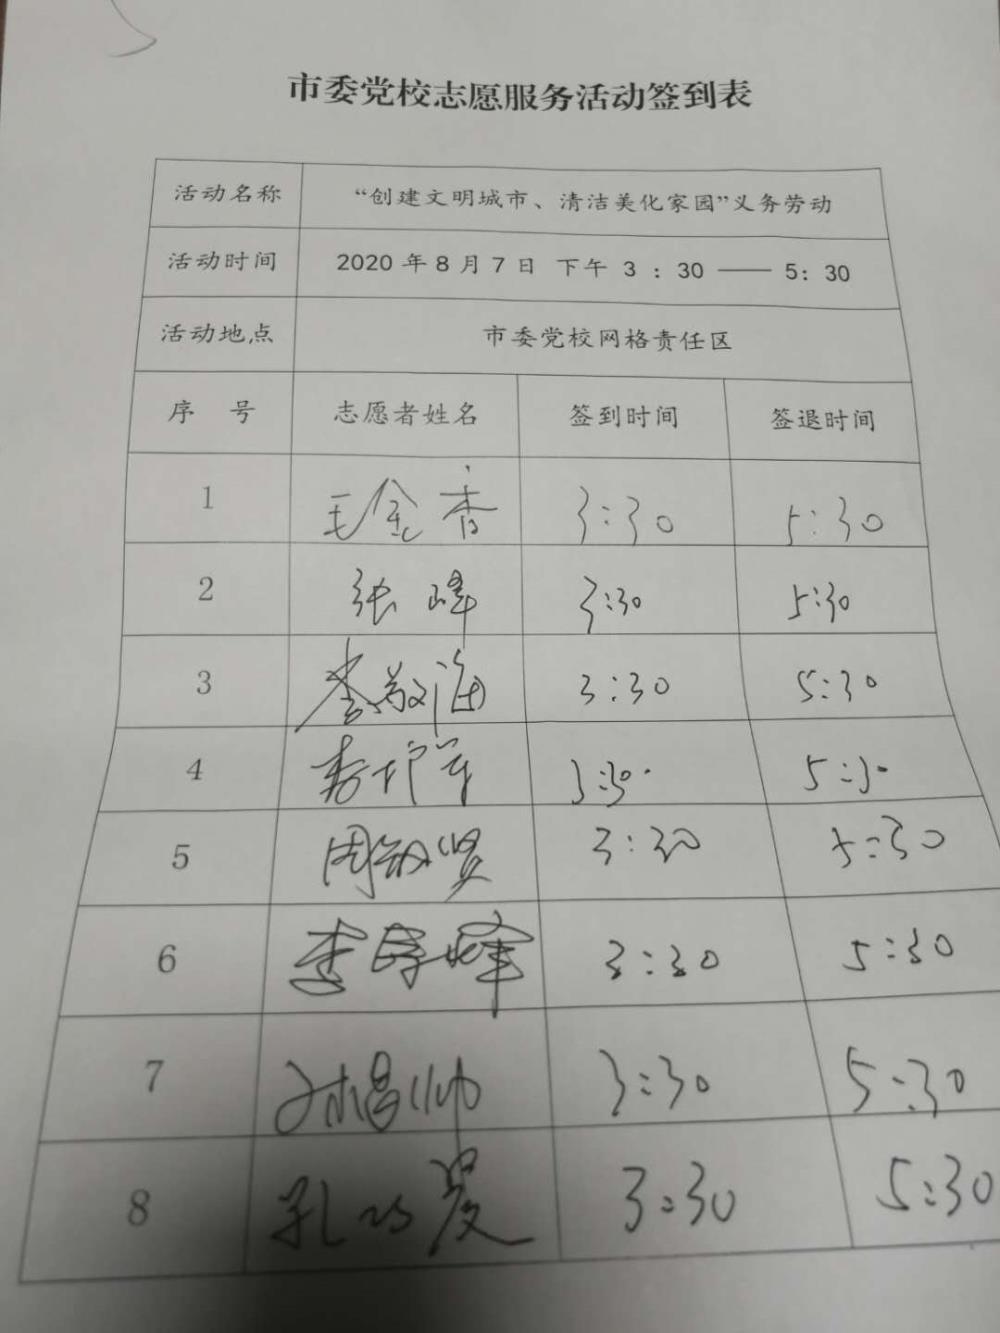 市委党校志愿服务活动签到表
活动名称 “创建文明城市、清洁美化家园”义务劳动
活动时间 2020 年 8 月 7 日 下午 3 : 30 —— 5: 30
活动地点 市委党校网格责任区
序 号 志愿者姓名 签到时间 签退时间
1 王金香 3:30 5:30
2 张峰 3:30 5:30
3 李敬海 3:30 5:30
4 3:30 5:30
5 周敏贤 3:30 5:30
6 李 峰 3:30 5:30
7 3:30 5:30
8 孔 3:30 5:30